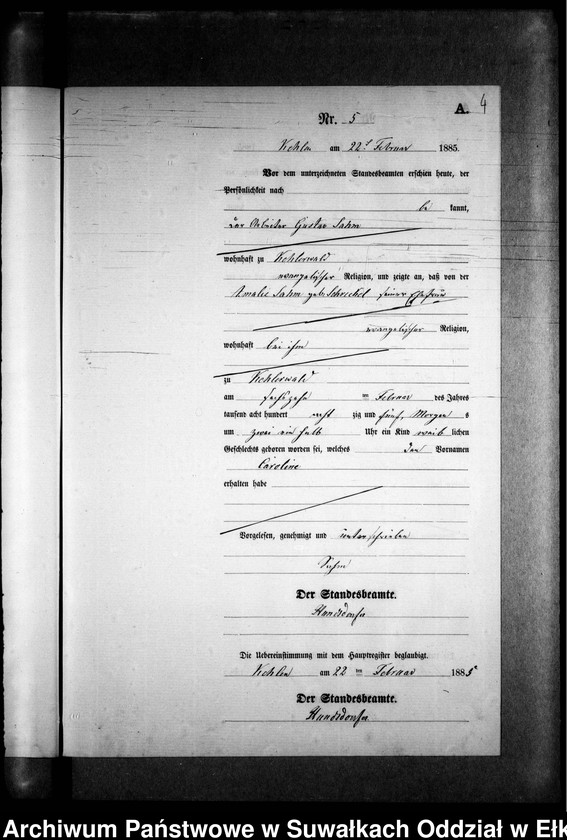 A. 4
Nr. 5
Kehlen am 22t Februar 1885.
Vor dem unterzeichneten Standesbeamten erschien heute, der
Persönlichkeit nach
be kannt,
der Arbeiter Gustav Sahm
wohnhaft zu Kehlerwald
evangelischer Religion, und zeigte an, daß von der
Amalie Sahm geb. seiner Ehefrau
evangelischer Religion,
wohnhaft bei ihm
zu Kehlerwald
am sechszehn ten Februar des Jahres
tausend acht hundert acht zig und fünf, Morgen s
um zwei ein halb Uhr ein Kind weib lichen
Geschlechts geboren worden sei, welches den Vornamen
Caroline
erhalten habe
Vorgelesen, genehmigt und unterschrieben
Sahm
Der Standesbeamte.
Die Uebereinstimmung mit dem Hauptregister beglaubigt.
Kehlen am 22 ten Februar 1885
Der Standesbeamte.
Archiwum Państwowe w Suwałkach Oddział w Ełk